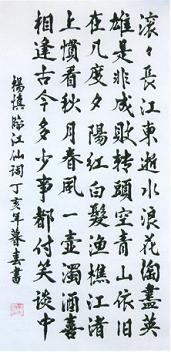 滚々長江東逝水浪花淘盡英
雄是非成敗转頭空青山依旧
在几度夕陽红白髮渔樵江渚
上慣看秋月春風一壶濁酒喜
相逢古今多少事都付笑談中
楊慎临江仙词丁亥年暮春書